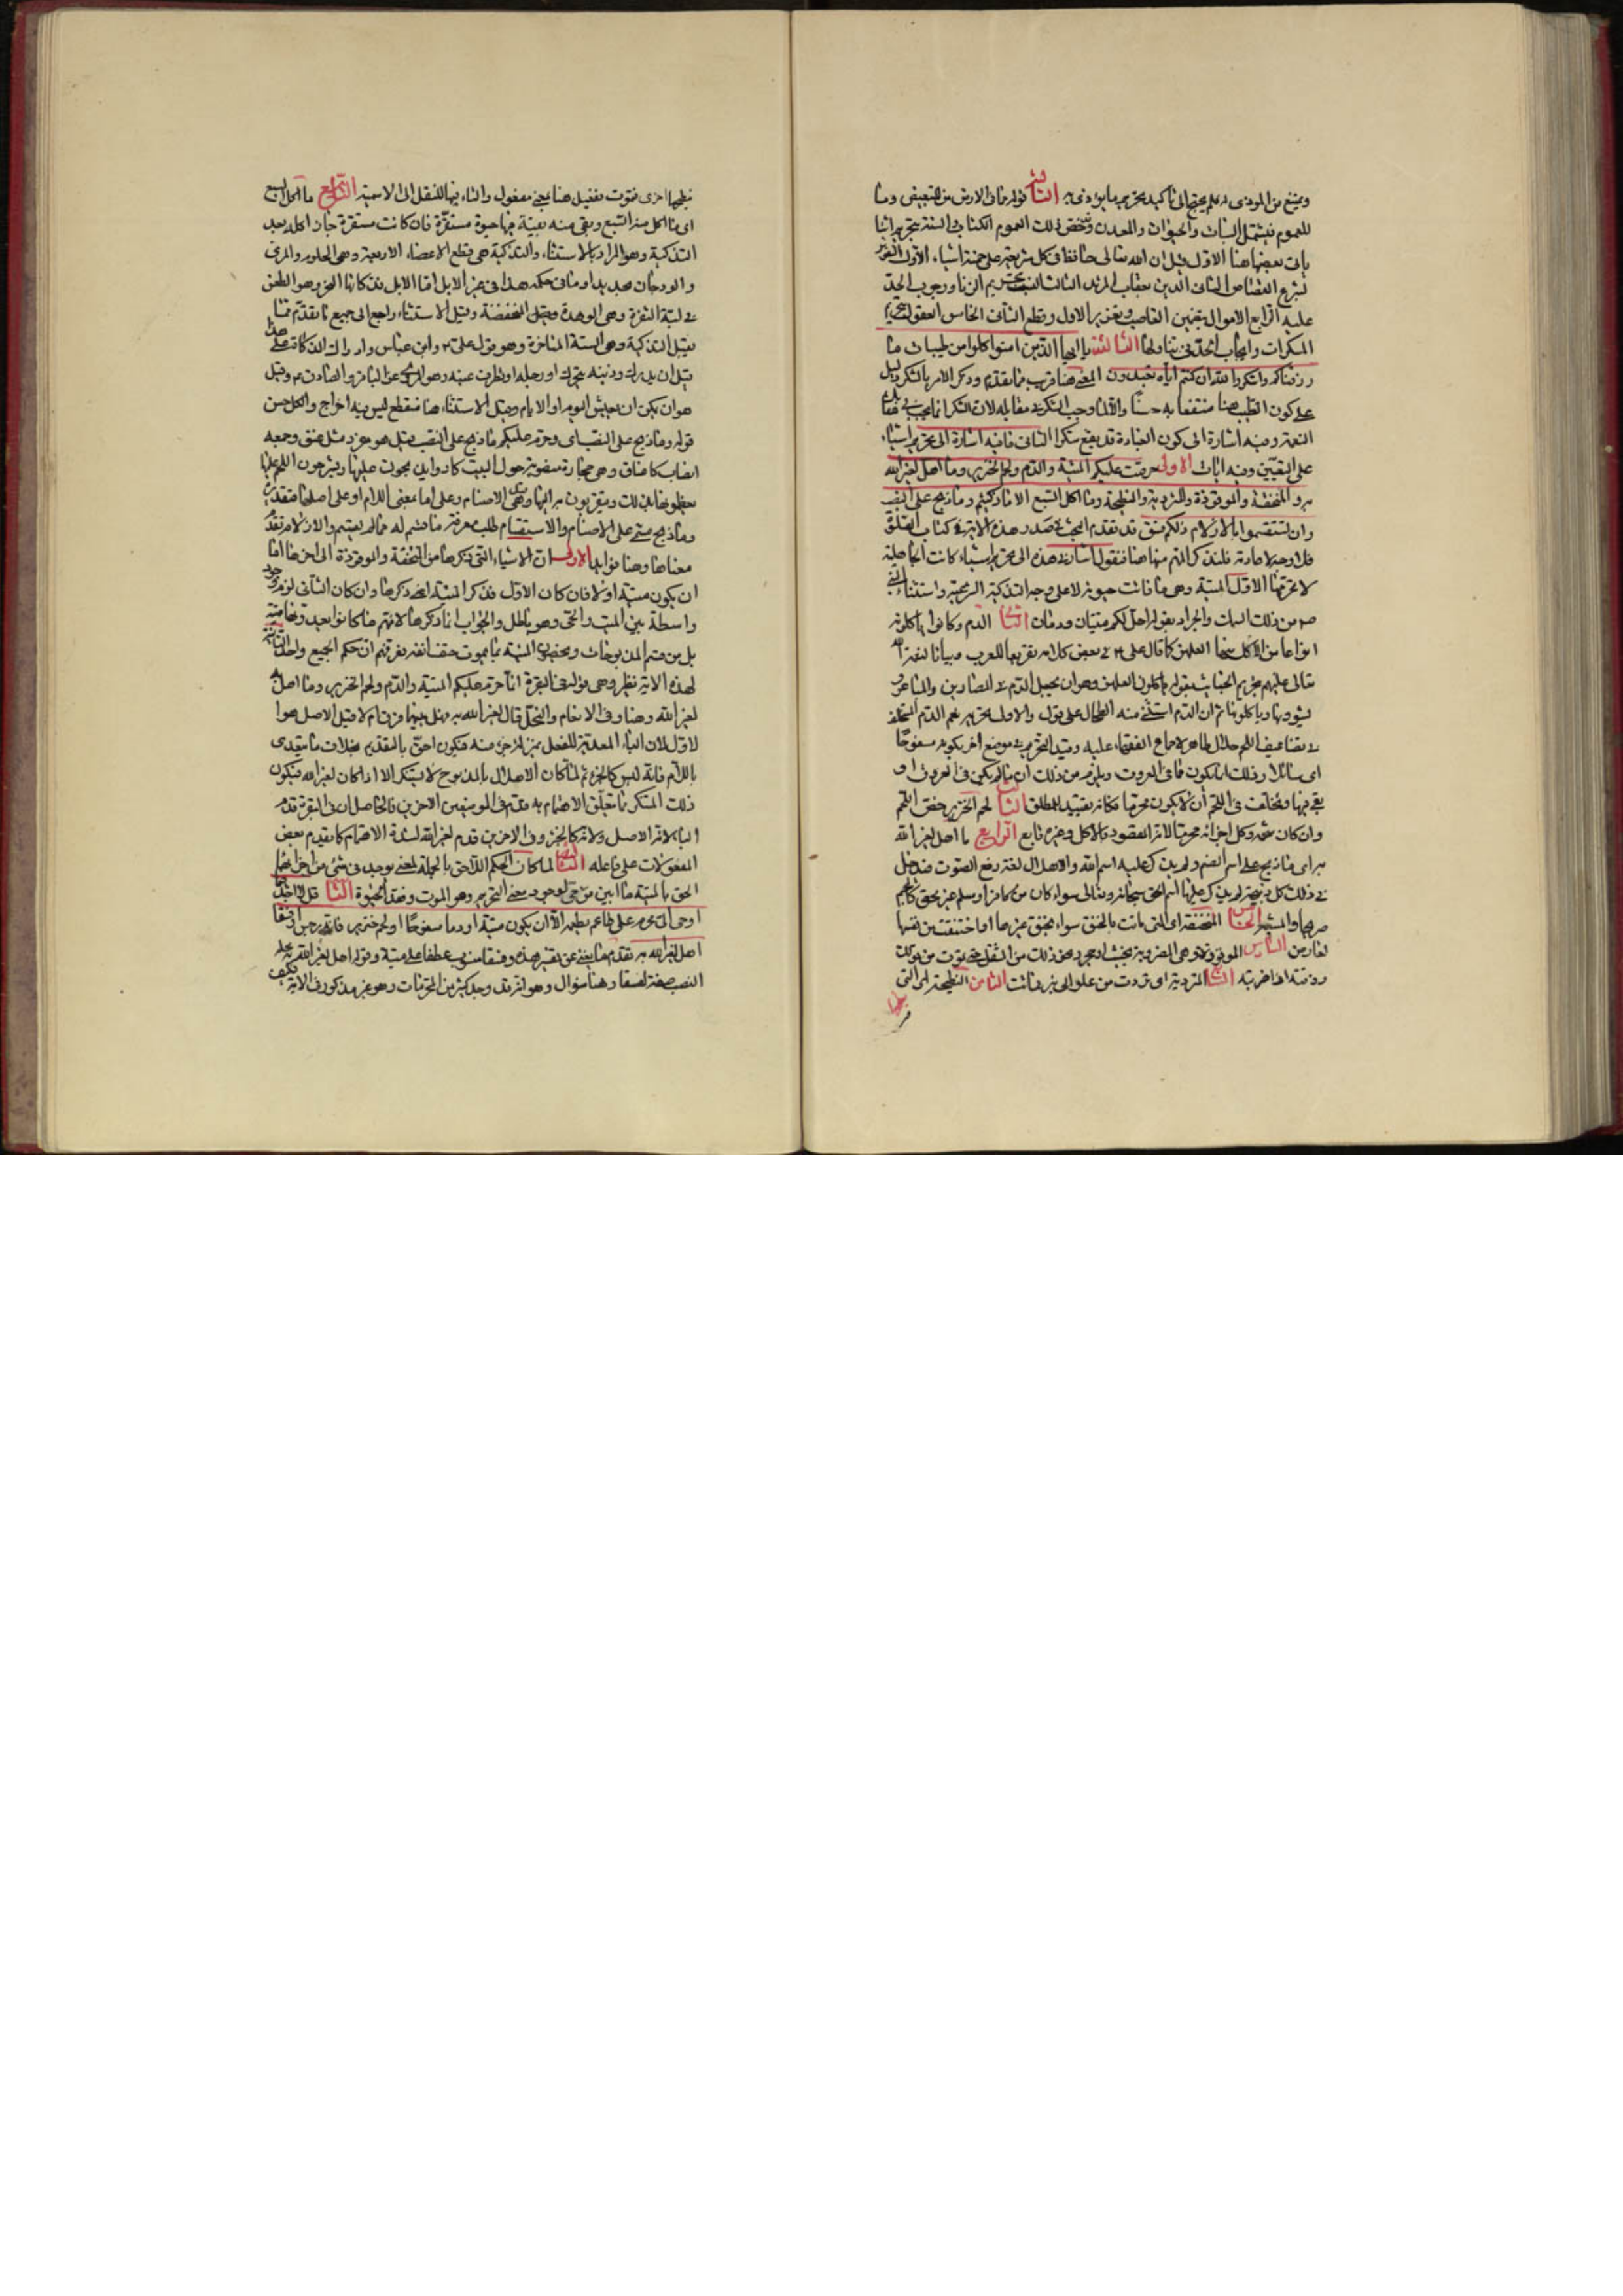 ويمنع من الموذى فلم يحتج الى تاكيد تحريم ما يؤذى به الثالثة قوله مما فى الارض من للتبعيض وما
للعموم فيشمل النبات والحيوان والمعدن وخص ذلك العموم الكتاب والسنة بتحريم اشيا
ياتى بعضها هنا الاول قيل ان الله تعالى حافظ فى كل شريعة على خمسة اشياء الاول النفس
بشرع القصاص الثانى الدين بعقاب المرتد الثالث النسب بتحريم الزنا ووجوب الحد
عليه الرابع الاموال بتضمين الغاصب وتعزير الاول وقطع الثانى الخامس العقول بتحريم
المسكرات وايجاب الحد فى تناولها الثالثة يا ايها الذين امنوا كلوا من طيبات ما
رزقناكم واشكروا لله ان كنتم اياه تعبدون المعنى هنا قريب مما تقدم وذكر الامر بالشكر دليل
على كون الطيب هنا منتفعا به حسنا والا لما وجب الشكر فى مقابله لان الشكر انما يجب فى مقابلة
النعمة وفيه اشارة الى كون العبادة تقع شكرا الثانى ما فيه اشارة الى تحريم اشياء
على التعيين وفيه ايات الاولى حرمت عليكم الميتة والدم ولحم الخنزير وما اهل لغير الله
به والمنخنقة والموقوذة والمتردية والنطيحة وما اكل السبع الا ما ذكيتم وما ذبح على النصب
وان تستقسموا بالازلام ذلكم فسق قد تقدم البحث فى صدر هذه الاية فى كتاب الصلوة
فلا وجه لاعادته فلنذكر المهم منها هنا فنقول اشار فى هذه الى تحريم اشياء كانت الجاهلية
لا تحرمها الاول الميتة وهى ما فاتت حيوته لا على وجه التذكية الشرعية واستثناء النبى
صم من ذلك السمك والجراد بقوله احل لكم ميتتان ودمان الثانى الدم وكانوا ياكلونه
انواعا من الاكل منها العلهز كما قال على ع فى بعض كلامه تقريعا للعرب وبيانا لنعمة الله
تعالى عليهم بتحريم الخبائث بقوله ياكلون العلهز وهو ان يجعل الدم فى المصارين والمباعر و
يشوونها وياكلونها ثم ان الدم استثنى منه الطحال على قول والاول تحريمه نعم الدم المتخلف
فى تضاعيف اللحم حلال طاهر لاجماع الفقهاء عليه وقيد التحريم فى موضع اخر بكونه مسفوحا
اى سائلا وذلك انما يكون فى العروق ويلزم من ذلك ان ما لم يكن فى العروق او
بقى فيها وتخلف فى اللحم ان لا يكون محرما فكانه تقييد للمطلق الثالث لحم الخنزير خص اللحم
وان كان شحمه وكل اجزائه محرما لانه المقصود بالاكل وغيره تابع الرابع ما اهل لغير الله
به اى ما ذبح على اسم الصنم ولم يذكر عليه اسم الله والاهلال لغة رفع الصوت فيدخل
فى ذلك كل ذبيحة لم يذكر عليها اسم الحق سبحانه وتعالى سواء كان من كافر او مسلم غير محق كالمجسم
صريحا والمشبه الخامس المنخنقة اى التى ماتت بالخنق سواء بخنق غيرها او اختنقت من نفسها
لعارض السادس الموقوذة وهى المضروبة بخشب او حجر ونحو ذلك من الثقل حتى يموت من قولك
وقذته اذا ضربته السابع المتردية اى تردت من علو الى بئر فماتت الثامن النطيحة اى التى
نطحها اخرى فتموت بفعيل هنا بمعنى مفعول والتاء فيها للنقل الى الاسمية التاسع ما اكل السبع
اى ما اكل منه السبع وبقى منه بقية فيها حيوة مستقرة فان كانت مستقرة جاز اكله بعد
التذكية وهو المراد بالاستثناء والتذكية هى قطع الاعضاء الاربعة وهى الحلقوم والمرى
والودجان بحديد او ما فى حكمه هذا فى غير الابل اما الابل فذكاتها النحر وهو الطعن
فى لبة الثغرة وهى الوهدة وقيل المنخفضة وقيل الاستثناء راجع الى جميع ما تقدم مما
يقبل التذكية وهى الستة المتاخرة وهو قول على ع وابن عباس وادراك الذكاة على هذا
قيل ان يدرك وذنبه يتحرك او رجله او تطرف عينه وهو المروى عن الباقر والصادق ع وقيل
هو ان يكون ان يعيش اليوم او الايام وقيل الاستثناء هنا منقطع ليس فيه اخراج والكل حسن
قوله وما ذبح على النصب اى وحرم عليكم ما ذبح على النصب قيل هو مفرد مثل عنق وجمعه
انصاب كاعناق وهى حجارة منصوبة حول البيت كانوا يذبحون عليها ويشرحون اللحم عليها
يعظمونها بذلك ويتقربون به اليها وقيل هى الاصنام وعلى اما بمعنى اللام او على اصلها فتقديره
وما ذبح مسمى على الاصنام والاستقسام طلب معرفة ما قسم له مما لم يقسم والازلام تقدم
معناها وهنا فوايد الاولى ان الاشياء التى ذكرها من المنخنقة والموقوذة الى اخرها اما
ان يكون ميتة او لا فان كان الاول فذكر الميتة يغنى ذكرها وان كان الثانى لزم وجود
واسطة بين الميت والحى وهو باطل والجواب انما ذكرها لانهم ما كانوا يعدونها ميتة
بل من قسم المذبوحات ويخصون الميتة بما يموت حتف انفه فعرفهم ان حكم الجميع واحد الثانية
لهذه الاية نظير وهى قوله فى البقرة انما حرم عليكم الميتة والدم ولحم الخنزير وما اهل به
لغير الله وهنا وفى الانعام والنحل قال لغير الله به فهل بينهما فرق ام لا قيل الاصل هو ا
لاول لان الباء المعدية للفعل بمنزلة الجزء منه فيكون احق بالتقديم بخلاف ما يتعدى
باللام فانه ليس كالجزء ثم لما كان الاهلال بالمذبوح لا يستنكر الا اذا كان لغير الله فيكون
ذلك المستنكر ما تعلق الاهتمام به قدم فى الموضعين الاخرين فالحاصل ان فى البقرة قدم
الباء لانه الاصل ولانه كالجزء وفى الاخرين قدم لغير الله لشدة الاهتمام كما يقدم بعض
المفعولات على فاعله الثالثة لما كان الحكم اللاحق بالجملة لمعنى يوجد فى شئ من اجزائها
الحق بالميتة ما ابين من حى لوجود معنى التحريم وهو الموت وفقد الحيوة الثانية قل لا اجد فيما
اوحى الى محرما على طاعم يطعمه الا ان يكون ميتة او دما مسفوحا او لحم خنزير فانه رجس او فسقا
اهل لغير الله به تقدم ما يغنى عن تفسير هذه وفسقا منصوب عطفا على ميتة وقوله اهل لغير الله به محله
النصب صفة لفسقا وهنا سؤال وهو انه قد وجد كثير من المحرمات وهو غير مذكور فى الاية فكيف